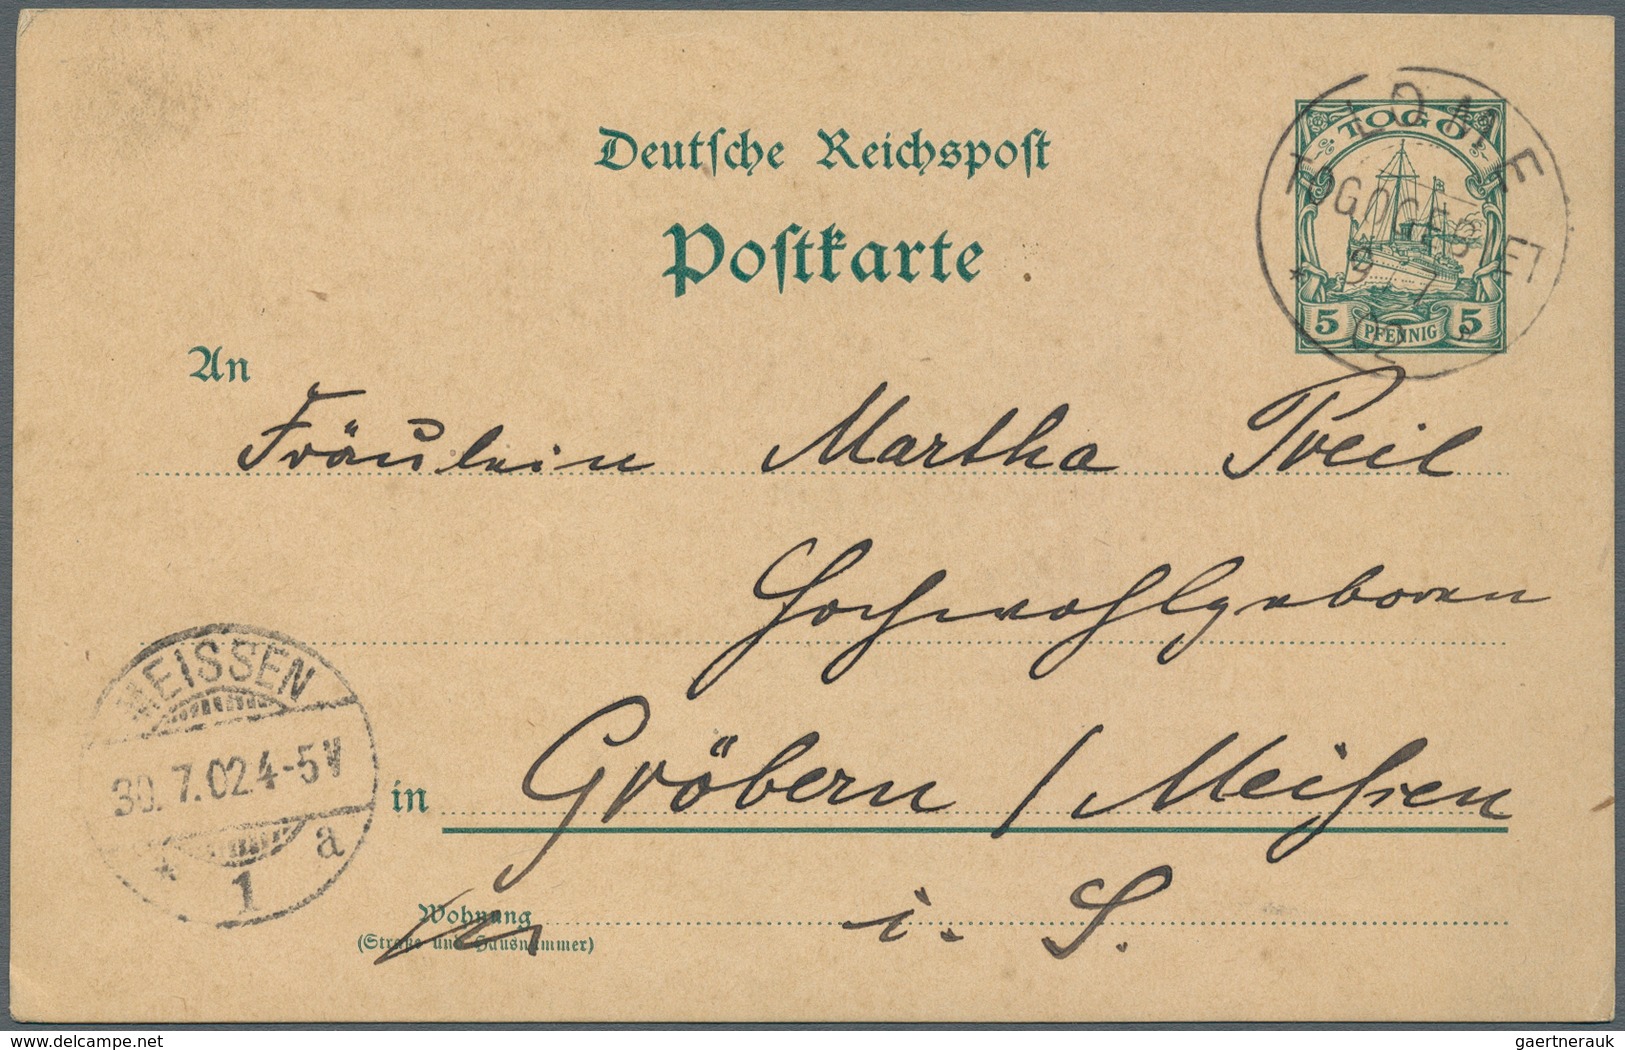 Deutsche Reichspost
Postkarte
TOGO
5 PFENNIG 5
LOME
TOGOGEBIET
19 7
02
An
Fräulein Martha Preil
Hochwohlgeboren
in Gröbern / Meißen
i. S.
Wohnung
(Straße und Hausnummer)
MEISSEN
30.7.02.4-5V
* 1 a
www.delcampe.net
gaertnerauk